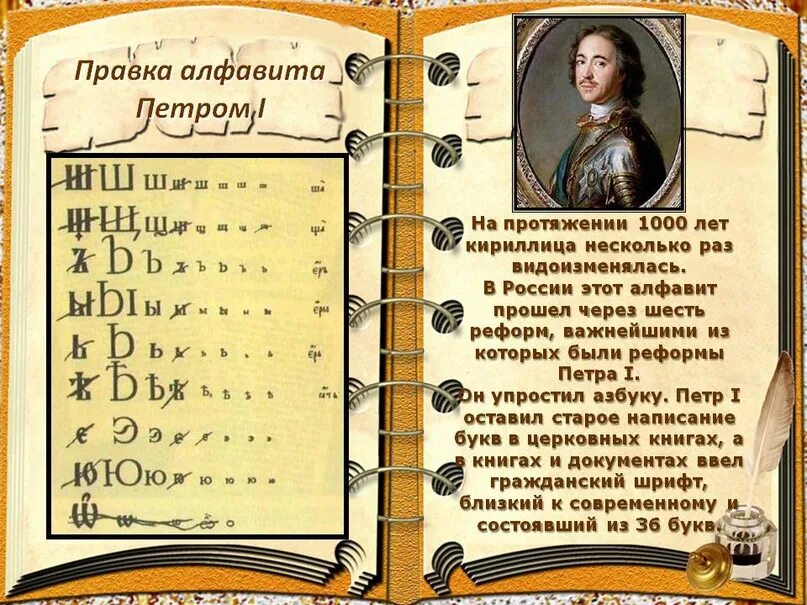 Правка алфавита
Петром I
Ш Ш ш ш ш ш ш ша
Щ Щ щ щ щ щ щ ща
Ъ Ъ ъ ъ ъ ъ ъ еръ
Ы Ы ы ы ы ы ы еры
Ь Ь ь ь ь ь ь ерь
Ѣ Ѣ ѣ ѣ ѣ ѣ ѣ ять
є Э э є э э э
Ю Ю ю ю ю ю ю ю
На протяжении 1000 лет
кириллица несколько раз
видоизменялась.
В России этот алфавит
прошел через шесть
реформ, важнейшими из
которых были реформы
Петра I.
Он упростил азбуку. Петр I
оставил старое написание
букв в церковных книгах, а
в книгах и документах ввел
гражданский шрифт,
близкий к современному и
состоявший из 36 букв.